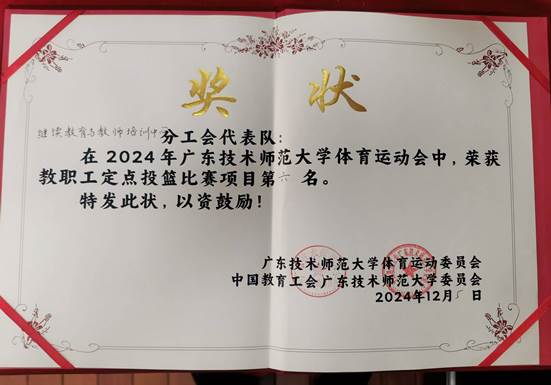 奖 状
继续教育与教师培训中心分工会代表队：
在2024年广东技术师范大学体育运动会中，荣获
教职工定点投篮比赛项目第六名。
特发此状，以资鼓励！
广东技术师范大学体育运动委员会
中国教育工会广东技术师范大学委员会
2024年12月 日